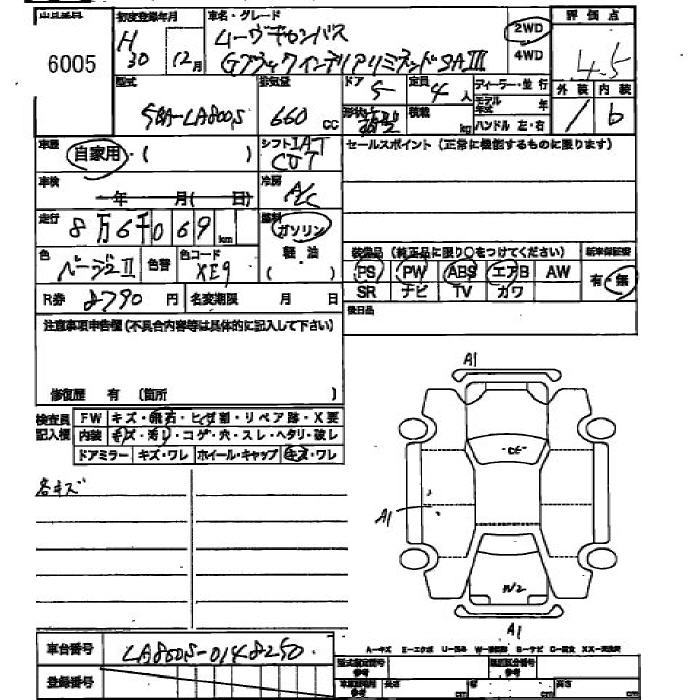 出品番号 初度登録年月 車名・グレード 2WD 評価点
6005 H30 12月 ムーヴキャンバス 4WD 4.5
Gブラックインテリアリミテッド SAⅢ
型式 排気量 ドア 5 定員 4人 ディーラー・並行 外装 内装
5BA-LA800S 660cc 形状 積載 kg モデル年式 年 ハンドル 左・右 1 b
車歴 自家用・( ) シフト IAT CVT セールスポイント (正常に機能するものに限ります)
車検 年 月( 日) 冷房 A/C
走行 8万6千069km 燃料 ガソリン
色 ベージュⅡ 色替 色コード XE9 軽油 ( ) 装備品 (純正品に限り○をつけてください) 新車保証書
PS PW ABS エアB AW 有・無
R券 8790円 名変期限 月 日 SR ナビ TV カワ
注意事項申告欄 (不具合内容等は具体的に記入して下さい) 後日品
修復歴 有 (箇所 )
検査員記入欄 FW キズ・飛石・ヒビ割・リペア跡・X要
内装 キズ・汚レ・コゲ・穴・スレ・ヘタリ・破レ
ドアミラー キズ・ワレ ホイール・キャップ キズ・ワレ
各キズ
A1
A1
W2
A1
車台番号 LA800S-0148250
登録番号
型式指定番号 参考 類別区分番号 参考
長さ cm 幅 cm 高さ cm